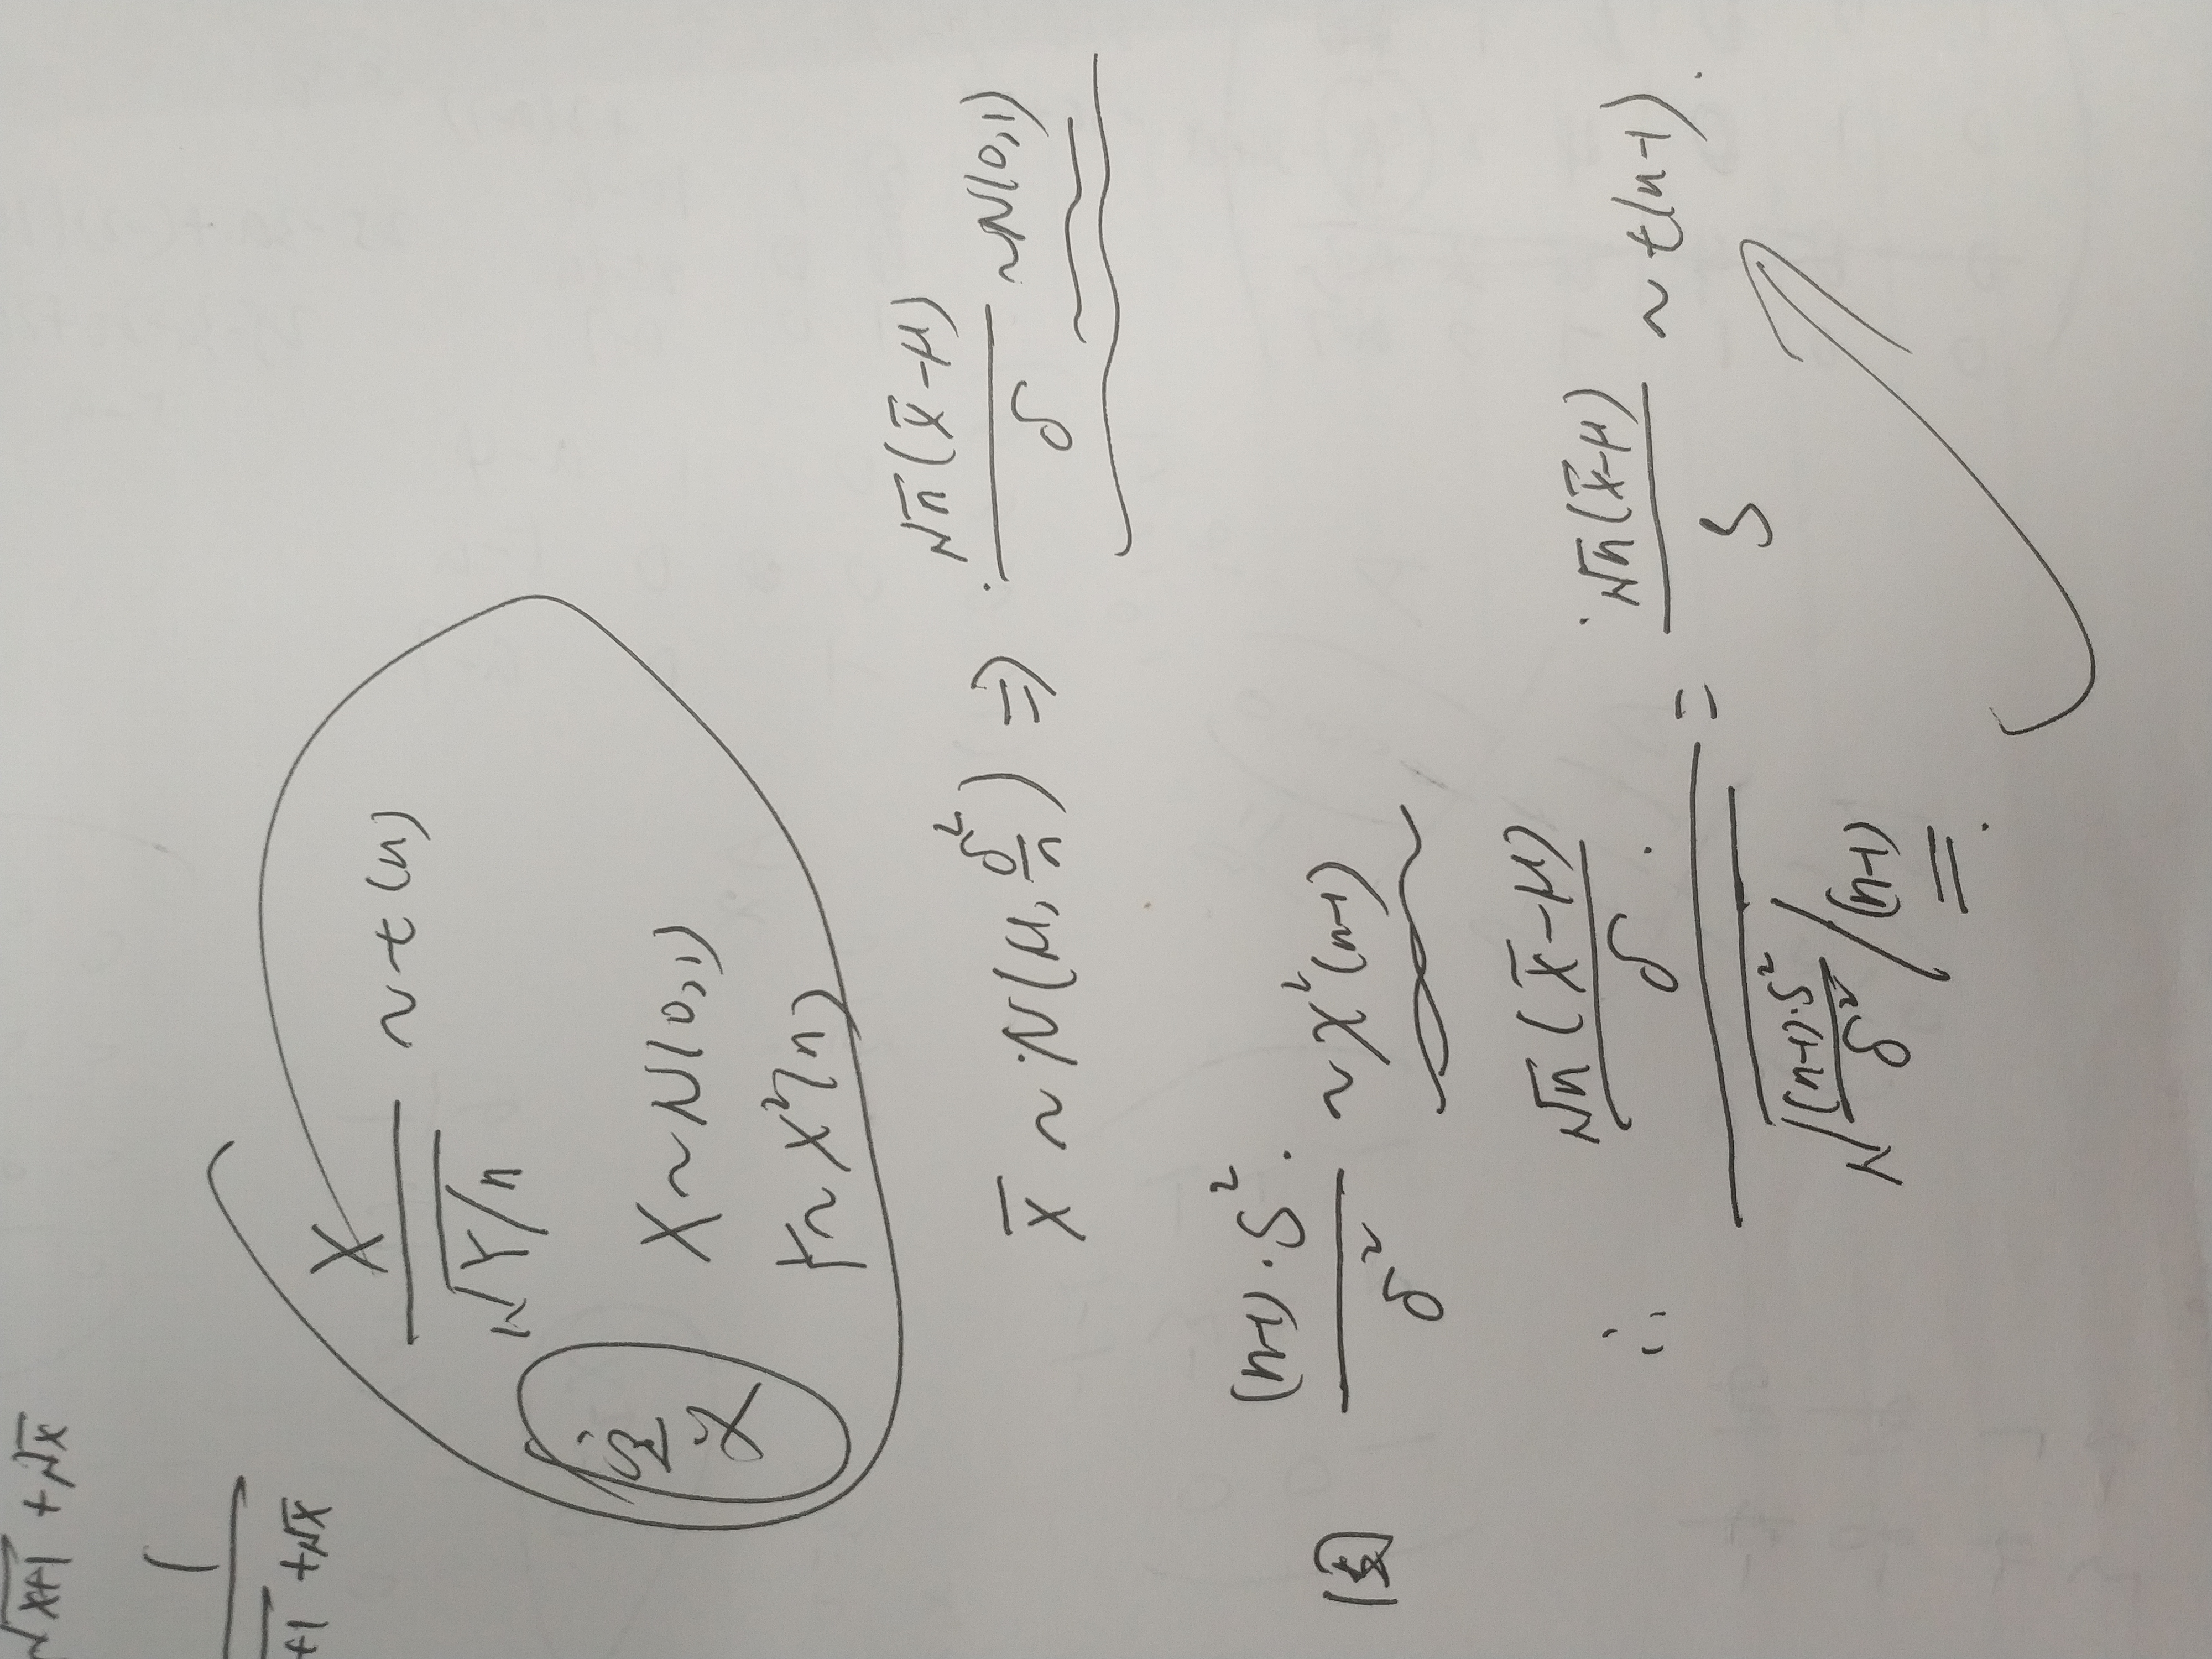 √x+1 + √x
1
+1 + √x
X / √Y/n ~ t(n)
定义
X ~ N(0,1)
Y ~ χ²(n)
X̄ ~ N(μ, δ²/n) ⇒ √n(X̄-μ) / δ ~ N(0,1)
因 (n-1)·S² / δ² ~ χ²(n-1)
∴ √n(X̄-μ)/δ / √(n-1)·S²/δ² /(n-1) = √n(X̄-μ) / S ~ t(n-1).